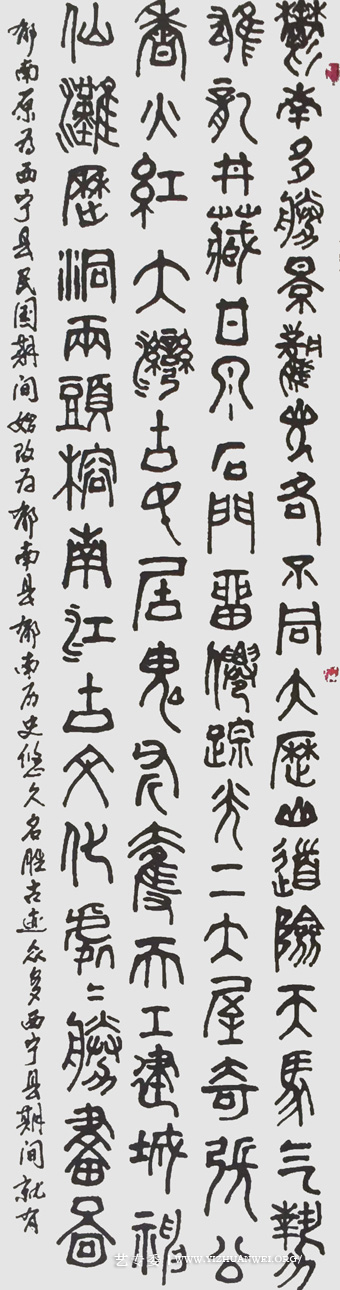 鬱南多勝景觀各不同大歷山道險天馬气勢
雄龍井藏日月石門留僊蹤光二大屋奇張公
香火紅大灣古民居鬼斧奪天工建城神
仙灘歷洞兩頭榕南江古文化處〻勝畫圖
郁南原为西宁县民国期间始改为郁南县郁南历史悠久名胜古迹众多西宁县期间就有
WWW.YIZHUANWEI.ORG